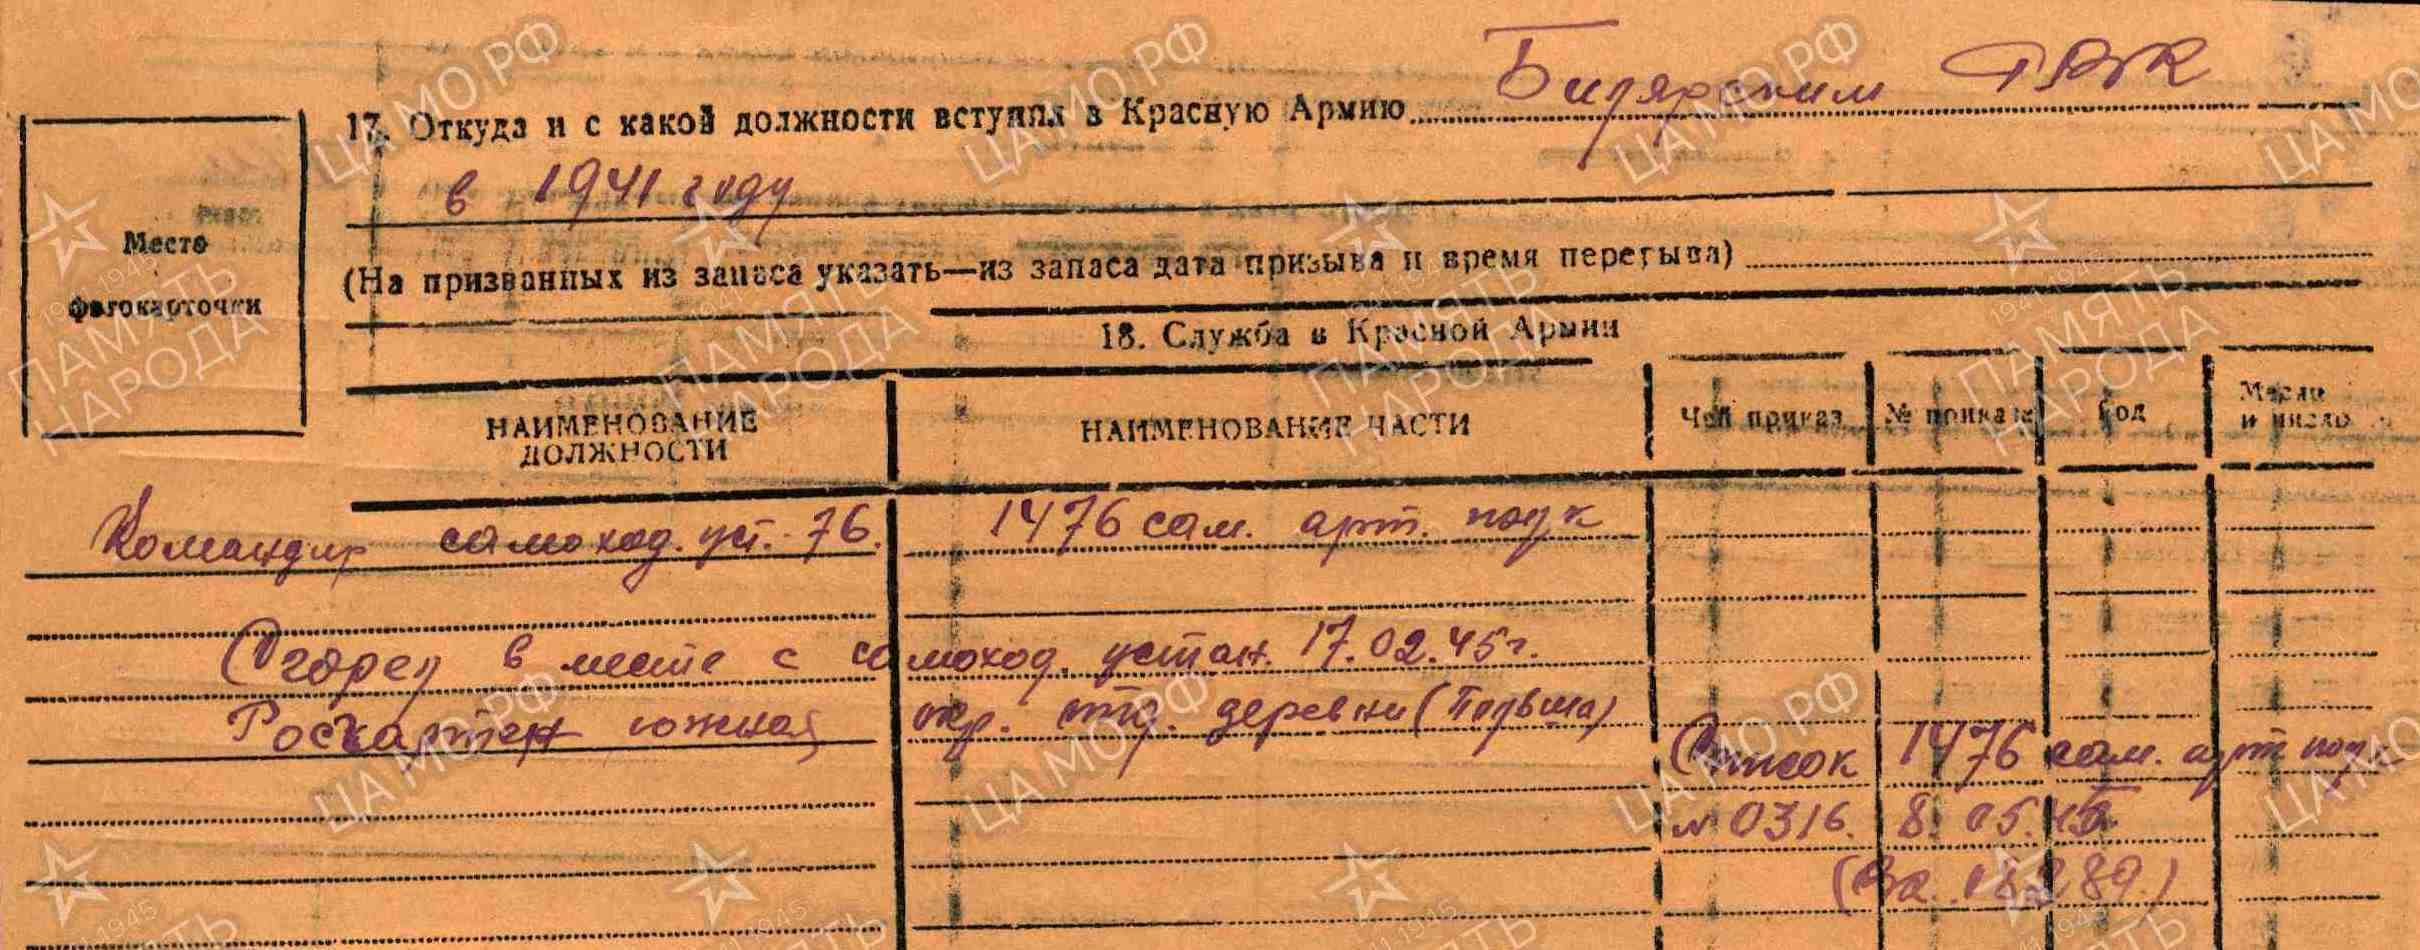 17. Откуда и с какой должности вступил в Красную Армию Билярским РВК
в 1941 году
Место
фотокарточки
(На призванных из запаса указать—из запаса дата призыва и время перерыва)
18. Служба в Красной Армии
НАИМЕНОВАНИЕ ДОЛЖНОСТИ НАИМЕНОВАНИЕ ЧАСТИ Чей приказ № приказа Год Месяц и число
Командир самоход. уст. 76. 1476 сам. арт. полк
Сгорел в месте с самоход. устан. 17.02.45г.
Роскартен южная окр. отд. деревни (Польша)
Список 1476 сам. арт полк
№ 0316. 8.05.45
ЦАМО.РФ
ПАМЯТЬ НАРОДА
1941-1945